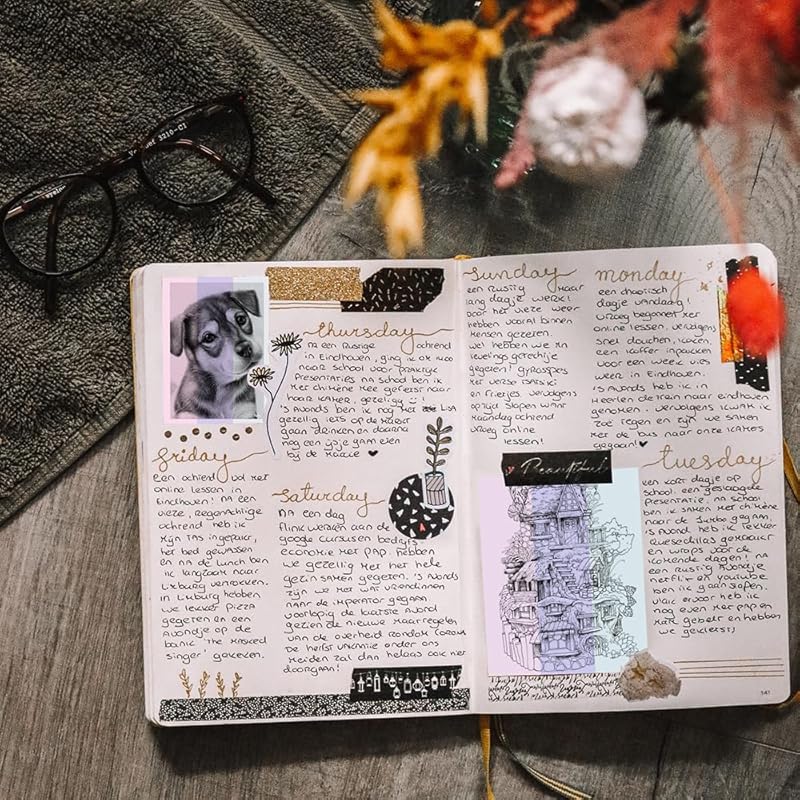 3210-C1
thursday
na een Rustige ochtend
in Eindhoven, ging ik ook nog
naar school voor praktijk
presentaties. na school ben ik
met chimène mee gefietst naar
haar kamer, gezellig :)
's avonds ben ik nog met Lisa
gezellig iets op de markt
gaan drinken en daarna
nog een ijsje gaan eten
bij de
friday
Een ochtend vol met
online lessen in
Eindhoven! na een
vieze, regenachtige
ochtend heb ik
mijn tas ingepakt,
het bed gewassen
en na de lunch ben
ik langzaam naar
Limburg vertrokken.
in Limburg hebben
we lekker pizza
gegeten en een
avondje op de
bank 'the masked
singer' gekeken.
saturday
na een dag
flink werken aan de
google cursus en bedrijfs-
economie met pap, hebben
we gezellig met het hele
gezin samen gegeten. 's avonds
zijn we met wat vriendinnen
naar de imperator gegaan.
voorlopig de laatste avond
gezien de nieuwe maatregelen
van de overheid rondom corona.
De herfst vakantie onder ons
meiden zal dan helaas ook niet
doorgaan!
sunday
een Rustig maar
lang dagje werk!
voor het vieze weer
hebben vooral binnen
mensen gezeten.
wel hebben we
lievelings gerechtje
gegeten! gyrosspies
met verse tzatziki
en frietjes. vervolgens
op tijd slapen want
maandag ochtend
vroeg online
lessen!
monday
een chaotisch
dagje vandaag!
vroeg begonnen met
online lessen, vervolgens
snel douchen, koken,
een koffer inpakken
voor een week vies
weer in Eindhoven.
's avonds heb ik in
Heerlen de trein naar eindhoven
genomen. vervolgens kwam ik
zoë tegen en zijn we samen
met de bus naar onze kamers
gegaan!
Beautiful
tuesday
een kort dagje op
school, een geslaagde
presentatie. na school
ben ik samen met chimène
naar de Jumbo gegaan.
's avond heb ik lekker
quesadillas gemaakt
en wraps voor de
komende dagen! na
een rustig avondje
netflix en youtube
ben ik gaan slapen.
vlak ervoor heb ik
nog even met pap en
mam gebeld en hebben
we gekletst;)
141